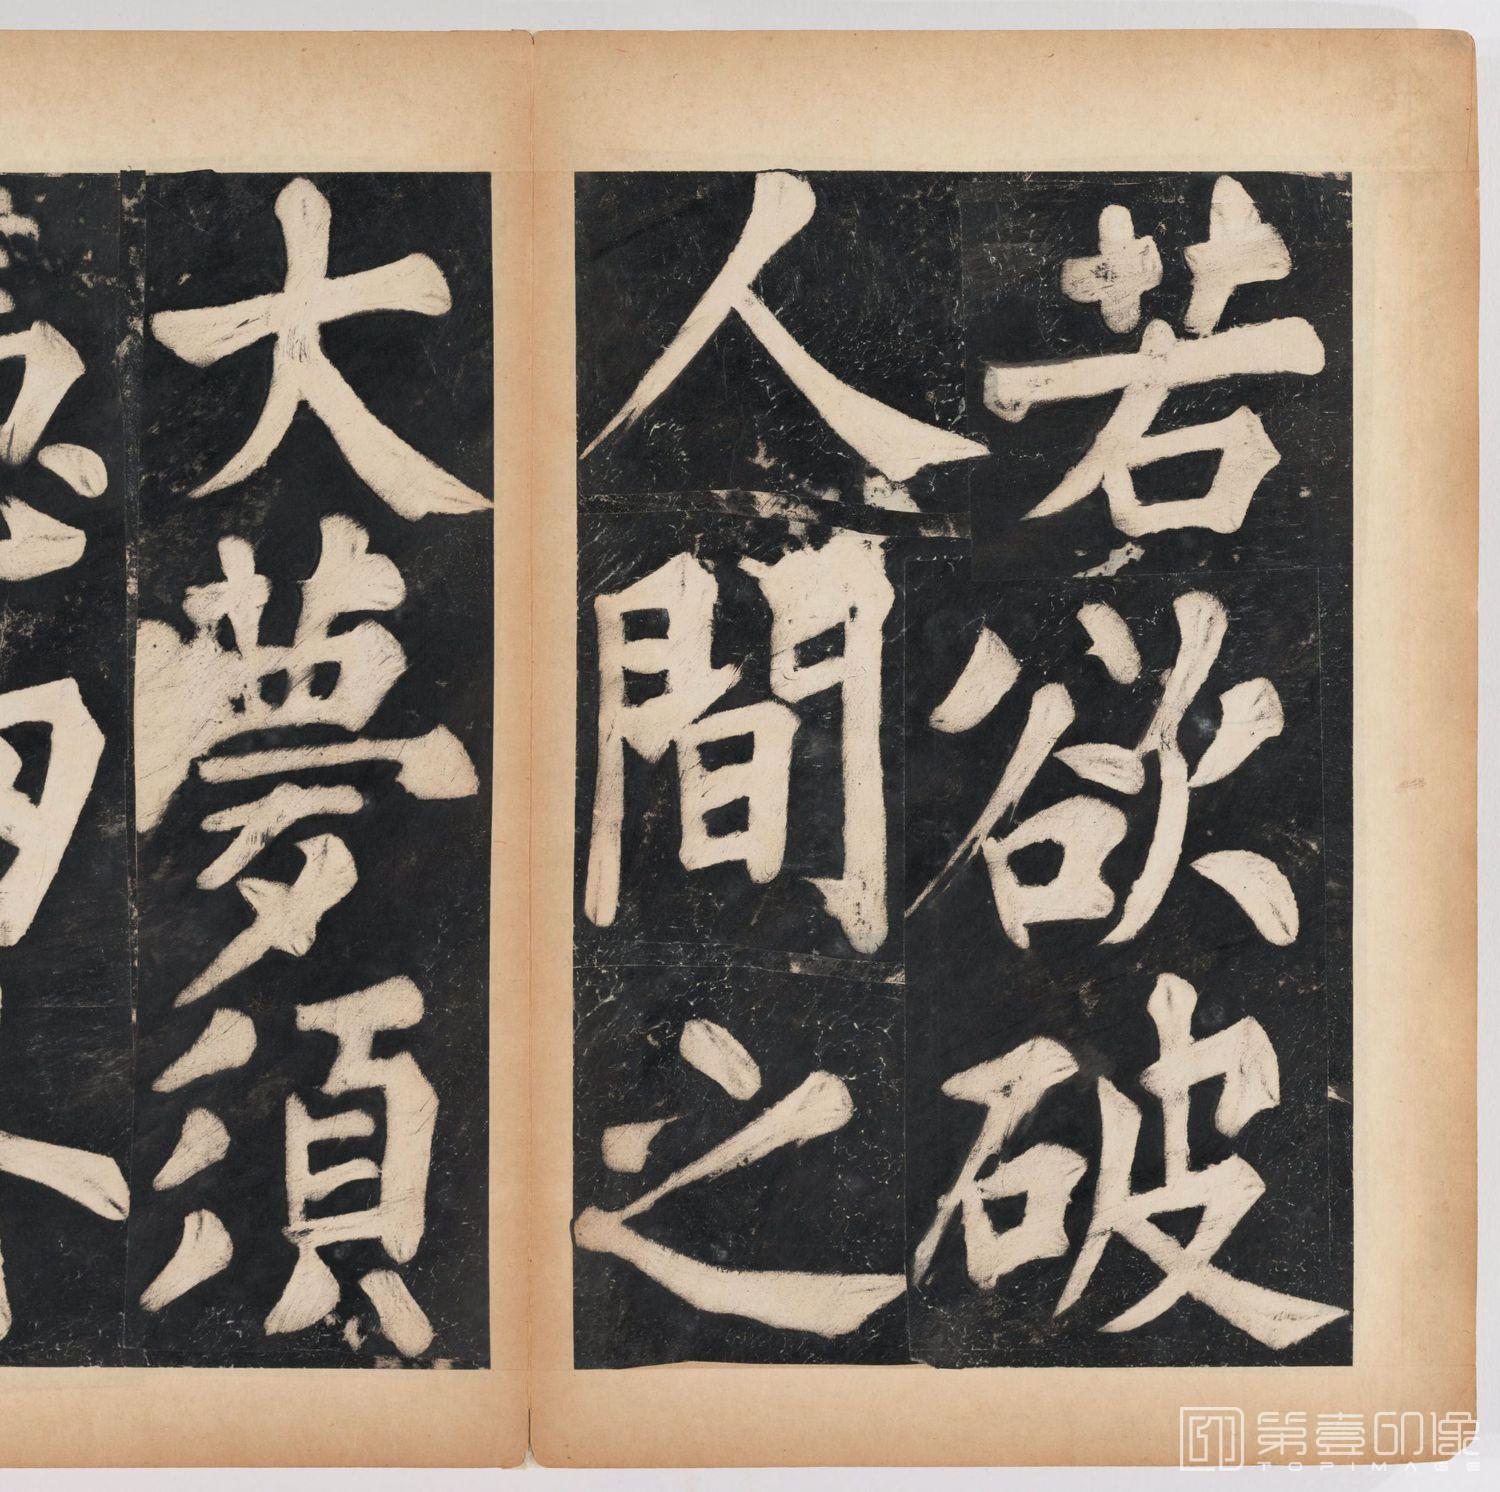 若欲破
人間之
大夢須
第壹印像
TOPIMAGE